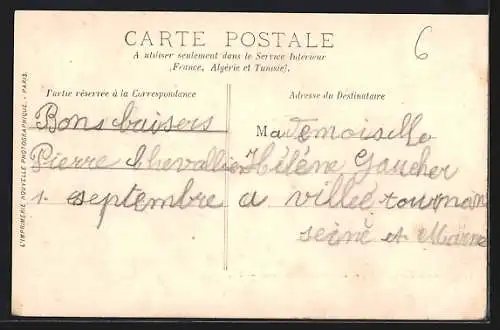 CARTE POSTALE
A utiliser seulement dans le Service Intérieur
(France, Algérie et Tunisie).
6
Partie réservée à la Correspondance
Adresse du Destinataire
Bons baisers
Pierre Chevallier
1. septembre
Mademoiselle
Hélène Gaucher
a villé tournan
seine et Marne
L'IMPRIMERIE NOUVELLE PHOTOGRAPHIQUE. - PARIS.